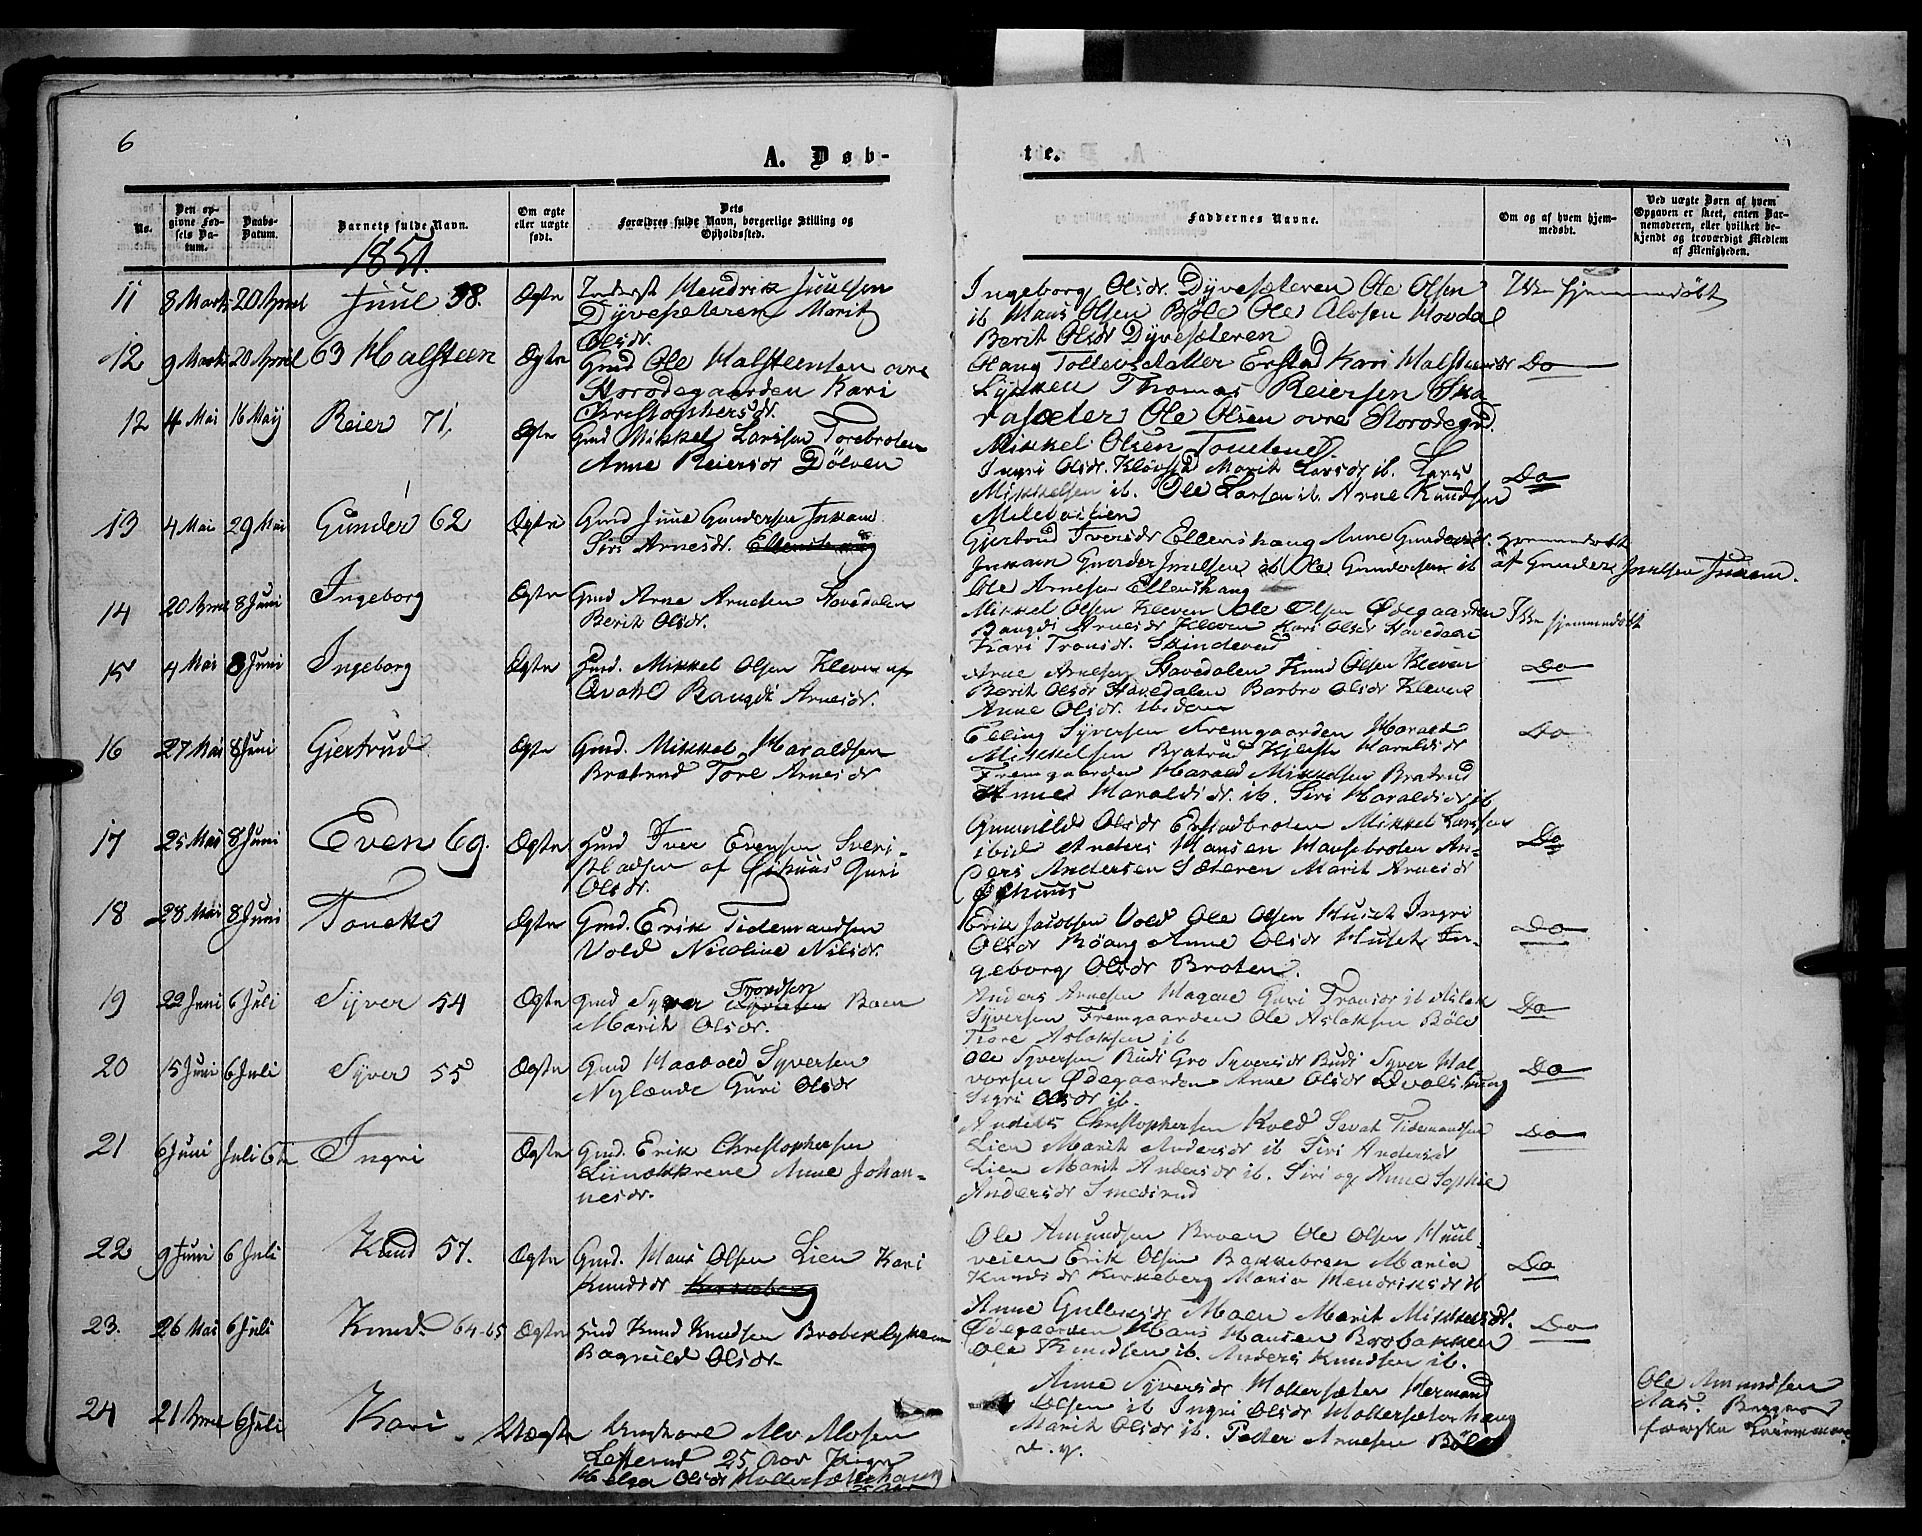 6
A. Døb-
te.
No.
Den op-
givne Fød-
sels Da-
tum.
Daabs-
Datum.
Barnets fulde Navn.
Om ægte
eller uægte
født.
Dets
Forældres fulde Navn, borgerlige Stilling og
Opholdssted.
Faddernes Navne.
Om og af hvem hjem-
medøbt.
Ved uægte Børn af hvem
Opgaven er skeet, enten Bar-
nemoderen, eller hvilket be-
kjendt og troværdigt Medlem
af Menigheden.
1851.
11 8 Marts 20 April Juul 58. Ægte Inderst Hendrik Juulsen
Dyvesæteren Marit
Olsdr.
Ingeborg Olsdr. Dyvesæteren Ole Olsen
ib Hans Olsen Bøle Ole Olsen Hovdal
Berit Olsdr Dyvesæteren
Ikke hjemmedøbt
12 9 Marts 20 April 63 Halsteen Ægte Gmd Ole Halsteensen øvre
Storødegaarden Kari
Christophersdr.
Tollevsdatter Erstad Kari Halsteensdr
Lykken Thomas Reiersen Ska-
rasæter Ole Olsen øvre Storødegrd.
Mikkel Olsen
Do
12 4 Mai 16 Maij Reier 71, Ægte Gmd Mikkel Larssen Torebroten
Anne Reiersdr Dölven
Ingri Olsdr. Klövstad Marit Larsdr ib. Lars
Mikkelsen ib. Ole Larsen ib. Arne Knudsen
Do
13 4 Mai 29 Mai Gunder 62 Ægte Gmd Juul Gundersen
Siri Arnesdr.
Gjertrud Iversdr Ellenshaug Anne Gundersdr.
Gunder Juulsen ib Ole Gundersen ib
Ole Arnesen Ellenshaug
Hjemmedøbt
af Gunder Juulsen
14 20 April 8 Juni Ingeborg Ægte Gmd Arne Arnesen Havedalen
Berit Olsdr.
Mikkel Olsen Kleven Ole Olsen Ødegaarden
Raugdi Arnesdr Kleven Kari Olsdr Havedalen
Kari Tronsdr. Skinderud
Ikke hjemmedøbt
15 4 Mai 8 Juni Ingeborg Ægte Gmd. Mikkel Olsen Kleven af
Qvale Raugdi Arnesdr.
Arne Arnesen Havedalen Knud Olsen Kleven
Berit Olsdr Havedalen Barbro Olsdr Kleven
Anne Olsdr. ibidem
Do
16 27 Mai 8 Juni Gjertrud Ægte Gmd. Mikkel Haraldsen
Bratrud Tore Arnesdr
Elling Syversen Fremgaarden Harald
Mikkelsen Bratrud Kjersti Haraldsdr
Fremgaarden Harald Mikkelsen Bratrud
Anne Haraldsdr. ib. Siri Haraldsdr ib
Do
17 25 Mai 8 Juni Even 69. Ægte Gmd Iver Evensen Sveri-
pladsen af Guri
Olsdr.
Gunnild Olsdr Erstadbroten Mikkel Larssen
ibid Anders Hansen Hansebroten An-
ders Andersen Sæteren Marit Arnesdr
Do
18 28 Mai 8 Juni Ægte Gmd. Erik Tidemandsen
Vold Nicoline Nilsdr.
Erik Jacobsen Vold Ole Olsen Ingri
Olsdr Anne Olsdr In-
geborg Olsdr Broten.
Do
19 22 Juni 6 Juli Syver 54 Ægte Gmd Syver Trondsen Boen
Marit Olsdr.
Anders Arnesen Guri Tronsdr ib Aslak
Syversen Fremgaarden Ole Aslaksen Böle
Tore Aslaksen ib
Do
20 15 Juni 6 Juli Syver 55 Ægte Gmd Haavald Syversen
Nylænde Guri Olsdr
Ole Syversen Rudi Gro Syversdr Rudi Syver Hal-
vorsen Ødegaarden Anne Olsdr
Sigri Olsdr ib.
Do
21 6 Juni Juli 6te Ingri Ægte Gmd. Erik Christophersen
Anne Johan-
nesdr.
Anders Christophersen Kold Tidemandsen
Lien Marit Andersdr ib Siri Andersdr
Lien Marit Andersdr ib. Siri og Anne Sophie
Andersdr Smedsrud
Do
22 9 Juni 6 Juli Knud 57. Ægte Gmd. Hans Olsen Lien Kari
Knudsdr
Ole Amundsen Broen Ole Olsen
veien Erik Olsen Bakkebroen Maria
Knudsdr Kirkeberg Maria Hendriksdr ib
Do
23. 26 Mai 6 Juli Knud 64-65 Ægte Gmd Knud Knudsen Brobeklykken
Ragnild Olsdr.
Anne Gulliksdr Moen Marit Mikkelsdr.
Ødegaarden Hans Hansen Brobakken
Ole Knudsen ib. Anders Knudsen ib.
Do
24 21 April 6 Juli Kari. Uægte Ungkarl Alv Alvsen
25 Aar Pigen
Helga Olsdr
Anne Syversdr Hollersæter Hermand
Olsen ib Ingri Olsdr Hollersæterhaug
Marit Olsdr ib. Peder Arnesen Böle
Ole Amundsen